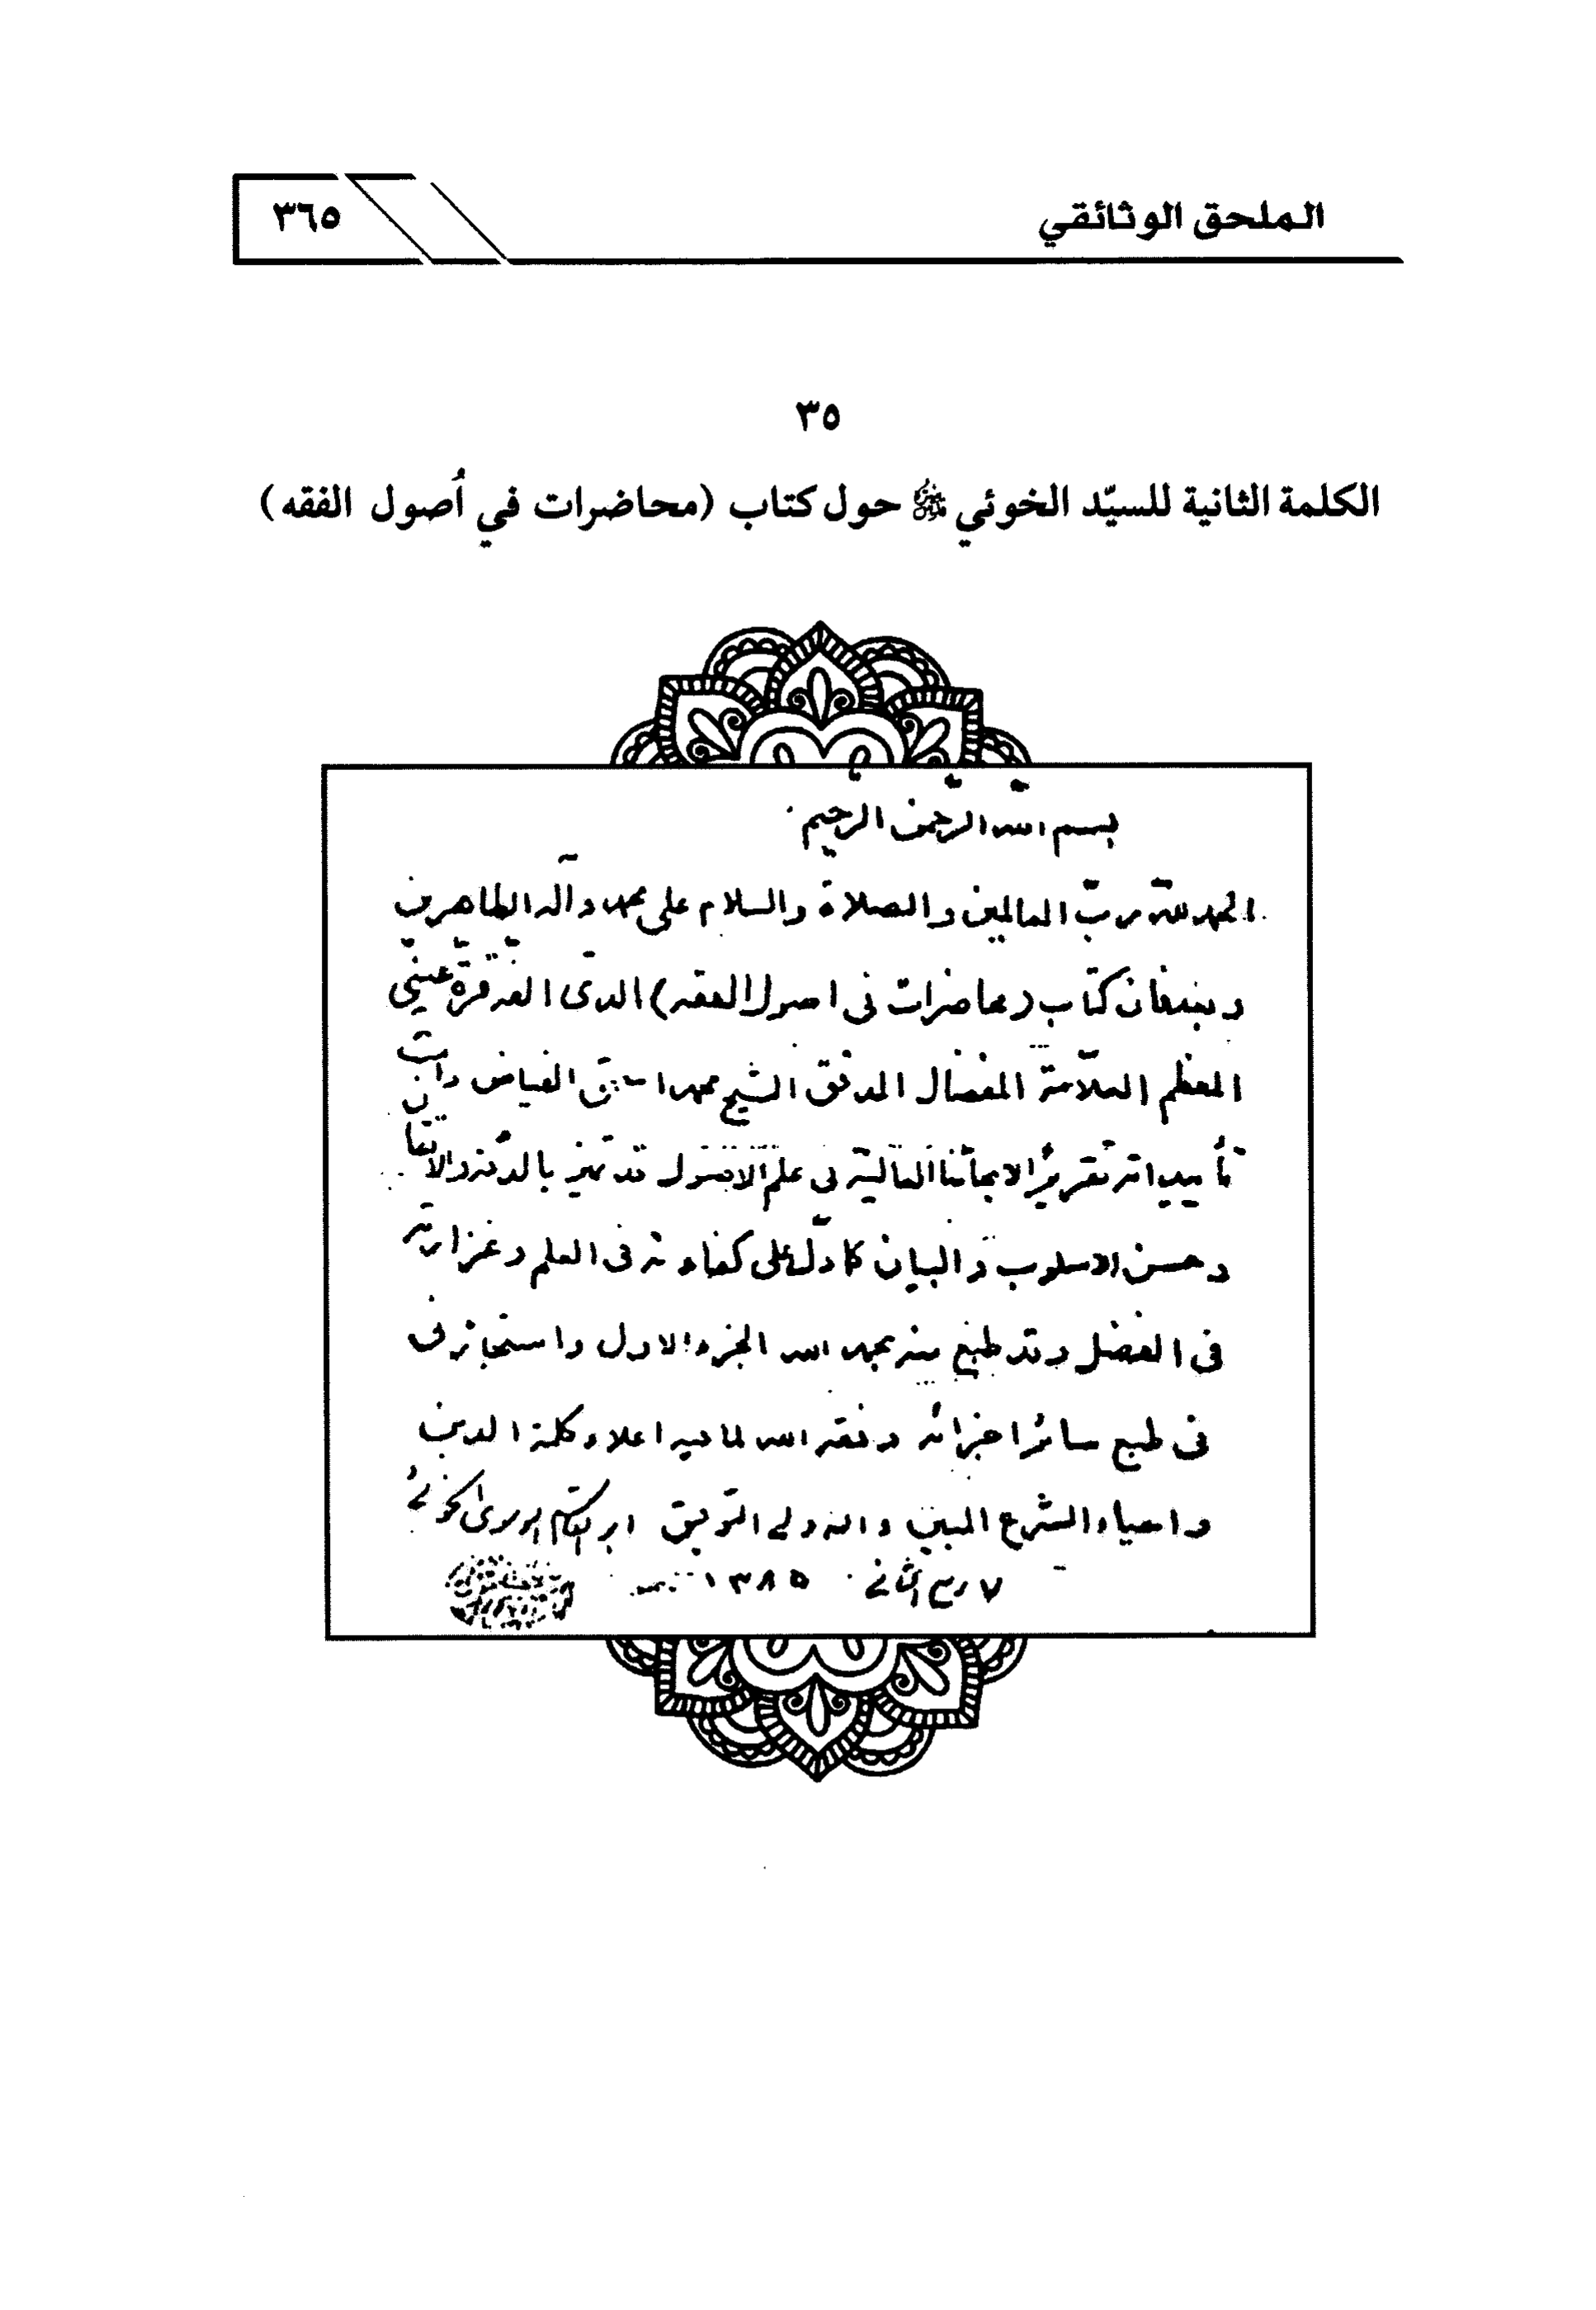 الملحق الوثائقي
٣٦٥
٣٥
الكلمة الثانية للسيّد الخوئي حول كتاب (محاضرات في أُصول الفقه)
بسم الله الرحمن الرحيم
الحمد لله ربّ العالمين والصلاة والسلام على محمد وآله الطاهرين
وبعد فان كتاب (محاضرات في اصول الفقه) الذي الفه قرة عيني
المعظم العلّامة المفضال المدقق الشيخ محمد اسحاق الفياض دامت
تأييداته تقريرًا لابحاثنا العالية في علم الاصول قد تميز بالدقة والاتقان
وحسن الاسلوب والبيان كما دلّ على كفاءته في العلم وغزارته
في الفضل وقد طبع منه بحمد الله الجزء الاول واستجازني
في طبع سائر اجزائه وفقه الله لما فيه اعلاء كلمة الدين
واحياء الشرع المبين والله ولي التوفيق ابو القاسم الموسوي الخوئي
٧ ربيع الثاني ١٣٨٥